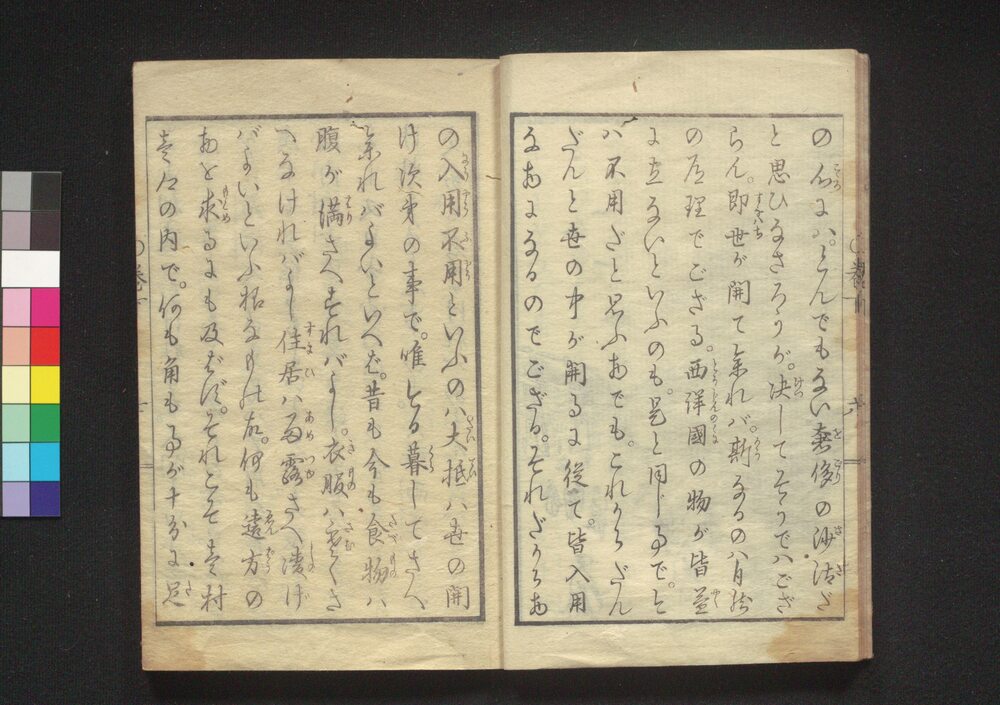 の分にハ。とんでもない奢侈の沙汰だ
と思ひなさろうが。決してそうでハござ
らん。即世が開て参れバ。斯なるのハ自然
の道理でござる。西洋國の物が皆益
に立ないといふのも。是と同じ事で。今
ハ不用だと思ふ物でも。これからだん
だんと世の中が開るに従て。皆入用
な物になるのでござる。それだから物
の入用不用といふのハ大抵ハ世の開
け次第の事で。唯暮してさへ
参れバよいといへば。昔も今も食物ハ
腹が満さへすれバよし。衣服ハ寒くさ
へなけれバよし住居ハ雨露さへ凌げ
バよいといふ様なもの故。何も遠方の
物を求るにも及ばず。それこそ村
の内で。何も角も事が十分に足